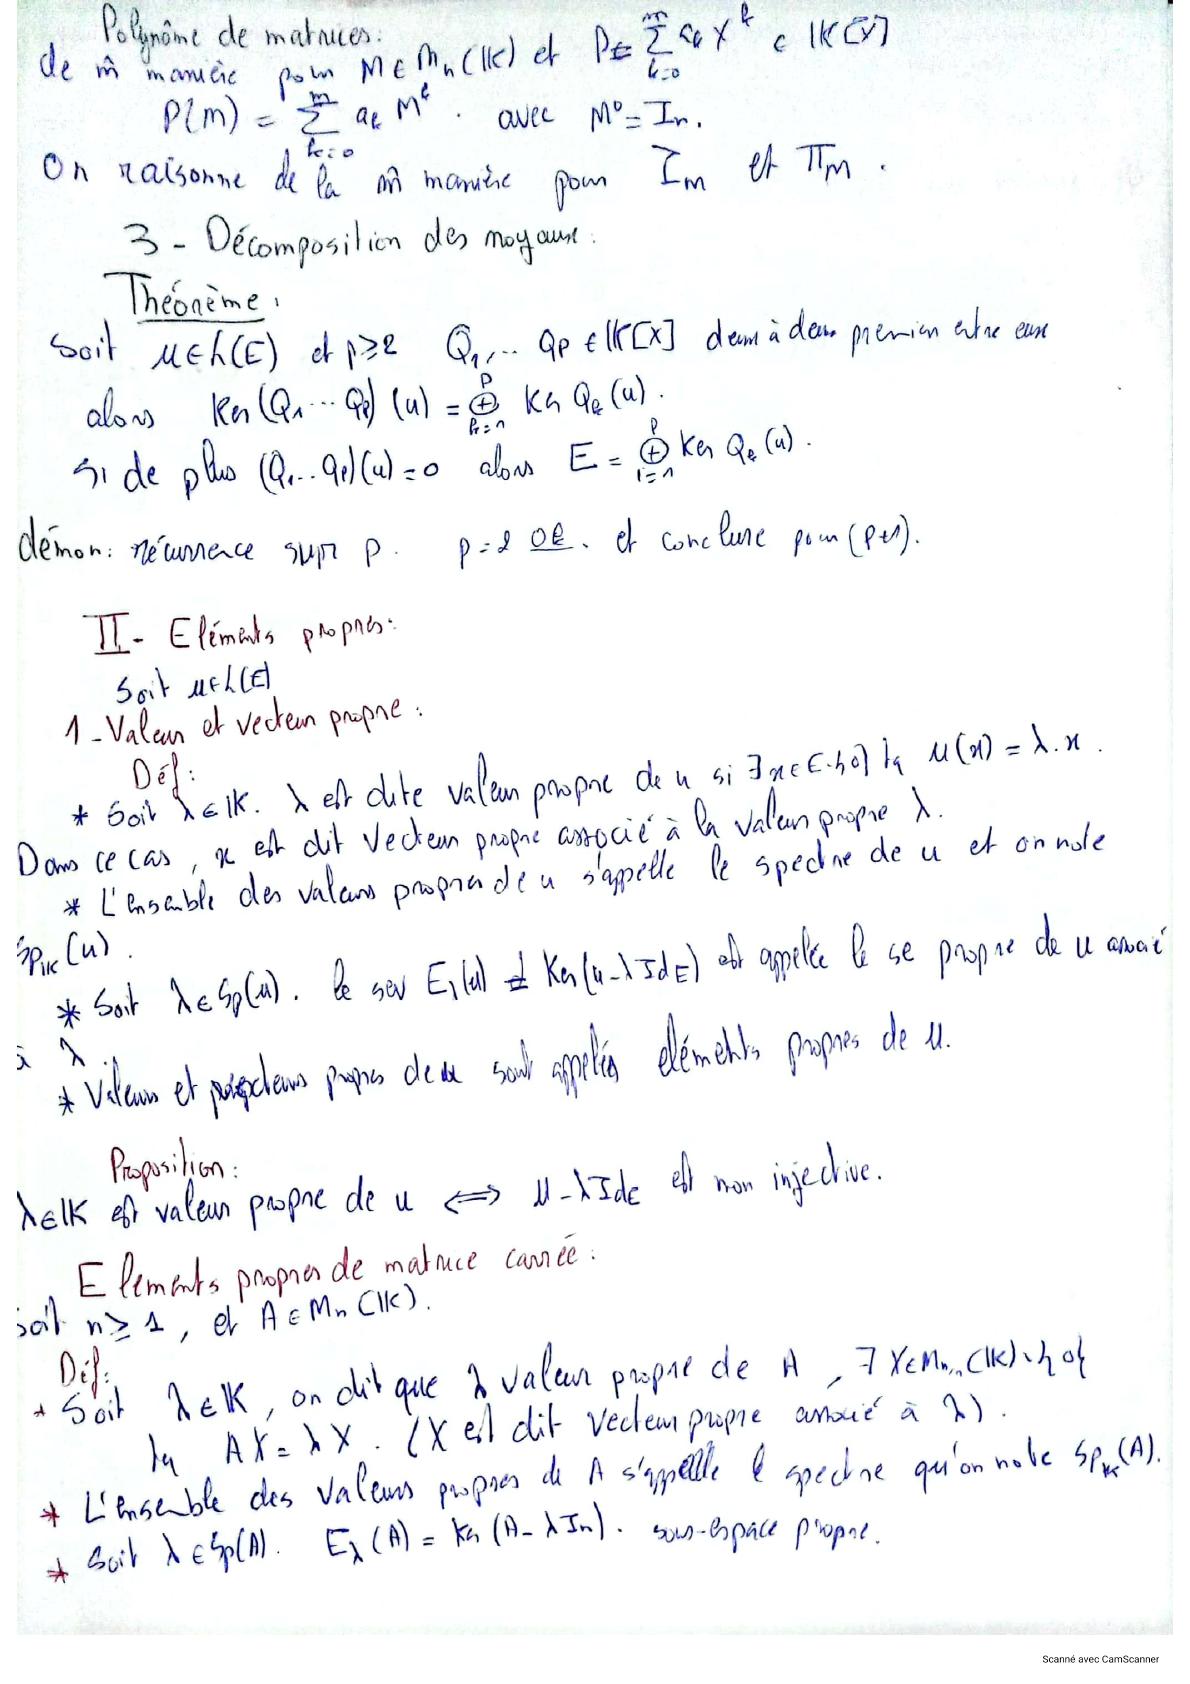 Polynôme de matrices:
de m̂ manière pour M ∈ Mn(IK) et P = ∑_{k=0}^{m} a_k X^k ∈ IK[X]
P(M) = ∑_{k=0}^{m} a_k M^k . avec M⁰ = In.
On raisonne de la m̂ manière pour I_M et π_M .
3 - Décomposition des noyaux :
Théorème :
Soit u ∈ L(E) et p ≥ 2 Q_1, ... Q_p ∈ IK[X] deux à deux premiers entre eux
alors Ker(Q_1 ... Q_p)(u) = ⊕_{k=1}^{p} Ker Q_k(u).
Si de plus (Q_1...Q_p)(u) = 0 alors E = ⊕_{i=1}^{p} Ker Q_k(u).
démon: récurrence sur p. p = 2 Ok. et conclure pour (p+1).
II - Eléments propres:
Soit u ∈ L(E)
1 - Valeur et vecteur propre :
Déf :
* Soit λ ∈ IK. λ est dite valeur propre de u si ∃ x ∈ E \ {0} tq u(x) = λ.x .
Dans ce cas, x est dit vecteur propre associé à la valeur propre λ.
* L'ensemble des valeurs propres de u s'appelle le spectre de u et on note
Sp_IK(u) .
* Soit λ ∈ Sp(u). le sev E_λ(u) = Ker(u - λ Id_E) est appelée le se propre de u associé
à λ .
* Valeurs et vecteurs propres de u sont appelés eléments propres de u.
Proposition :
λ ∈ IK est valeur propre de u ⟺ u - λ Id_E est non injective.
Elements propres de matrice carrée :
Soit n ≥ 1, et A ∈ Mn(IK).
Déf:
* Soit λ ∈ IK, on dit que λ valeur propre de A, ∃ X ∈ M_{n,1}(IK) \ {0}
tq AX = λX . (X est dit vecteur propre associé à λ) .
* L'ensemble des valeurs propres de A s'appelle le spectre qu'on note Sp_IK(A).
* Soit λ ∈ Sp(A). E_λ(A) = Ker(A - λ In). sous-espace propre.
Scanné avec CamScanner